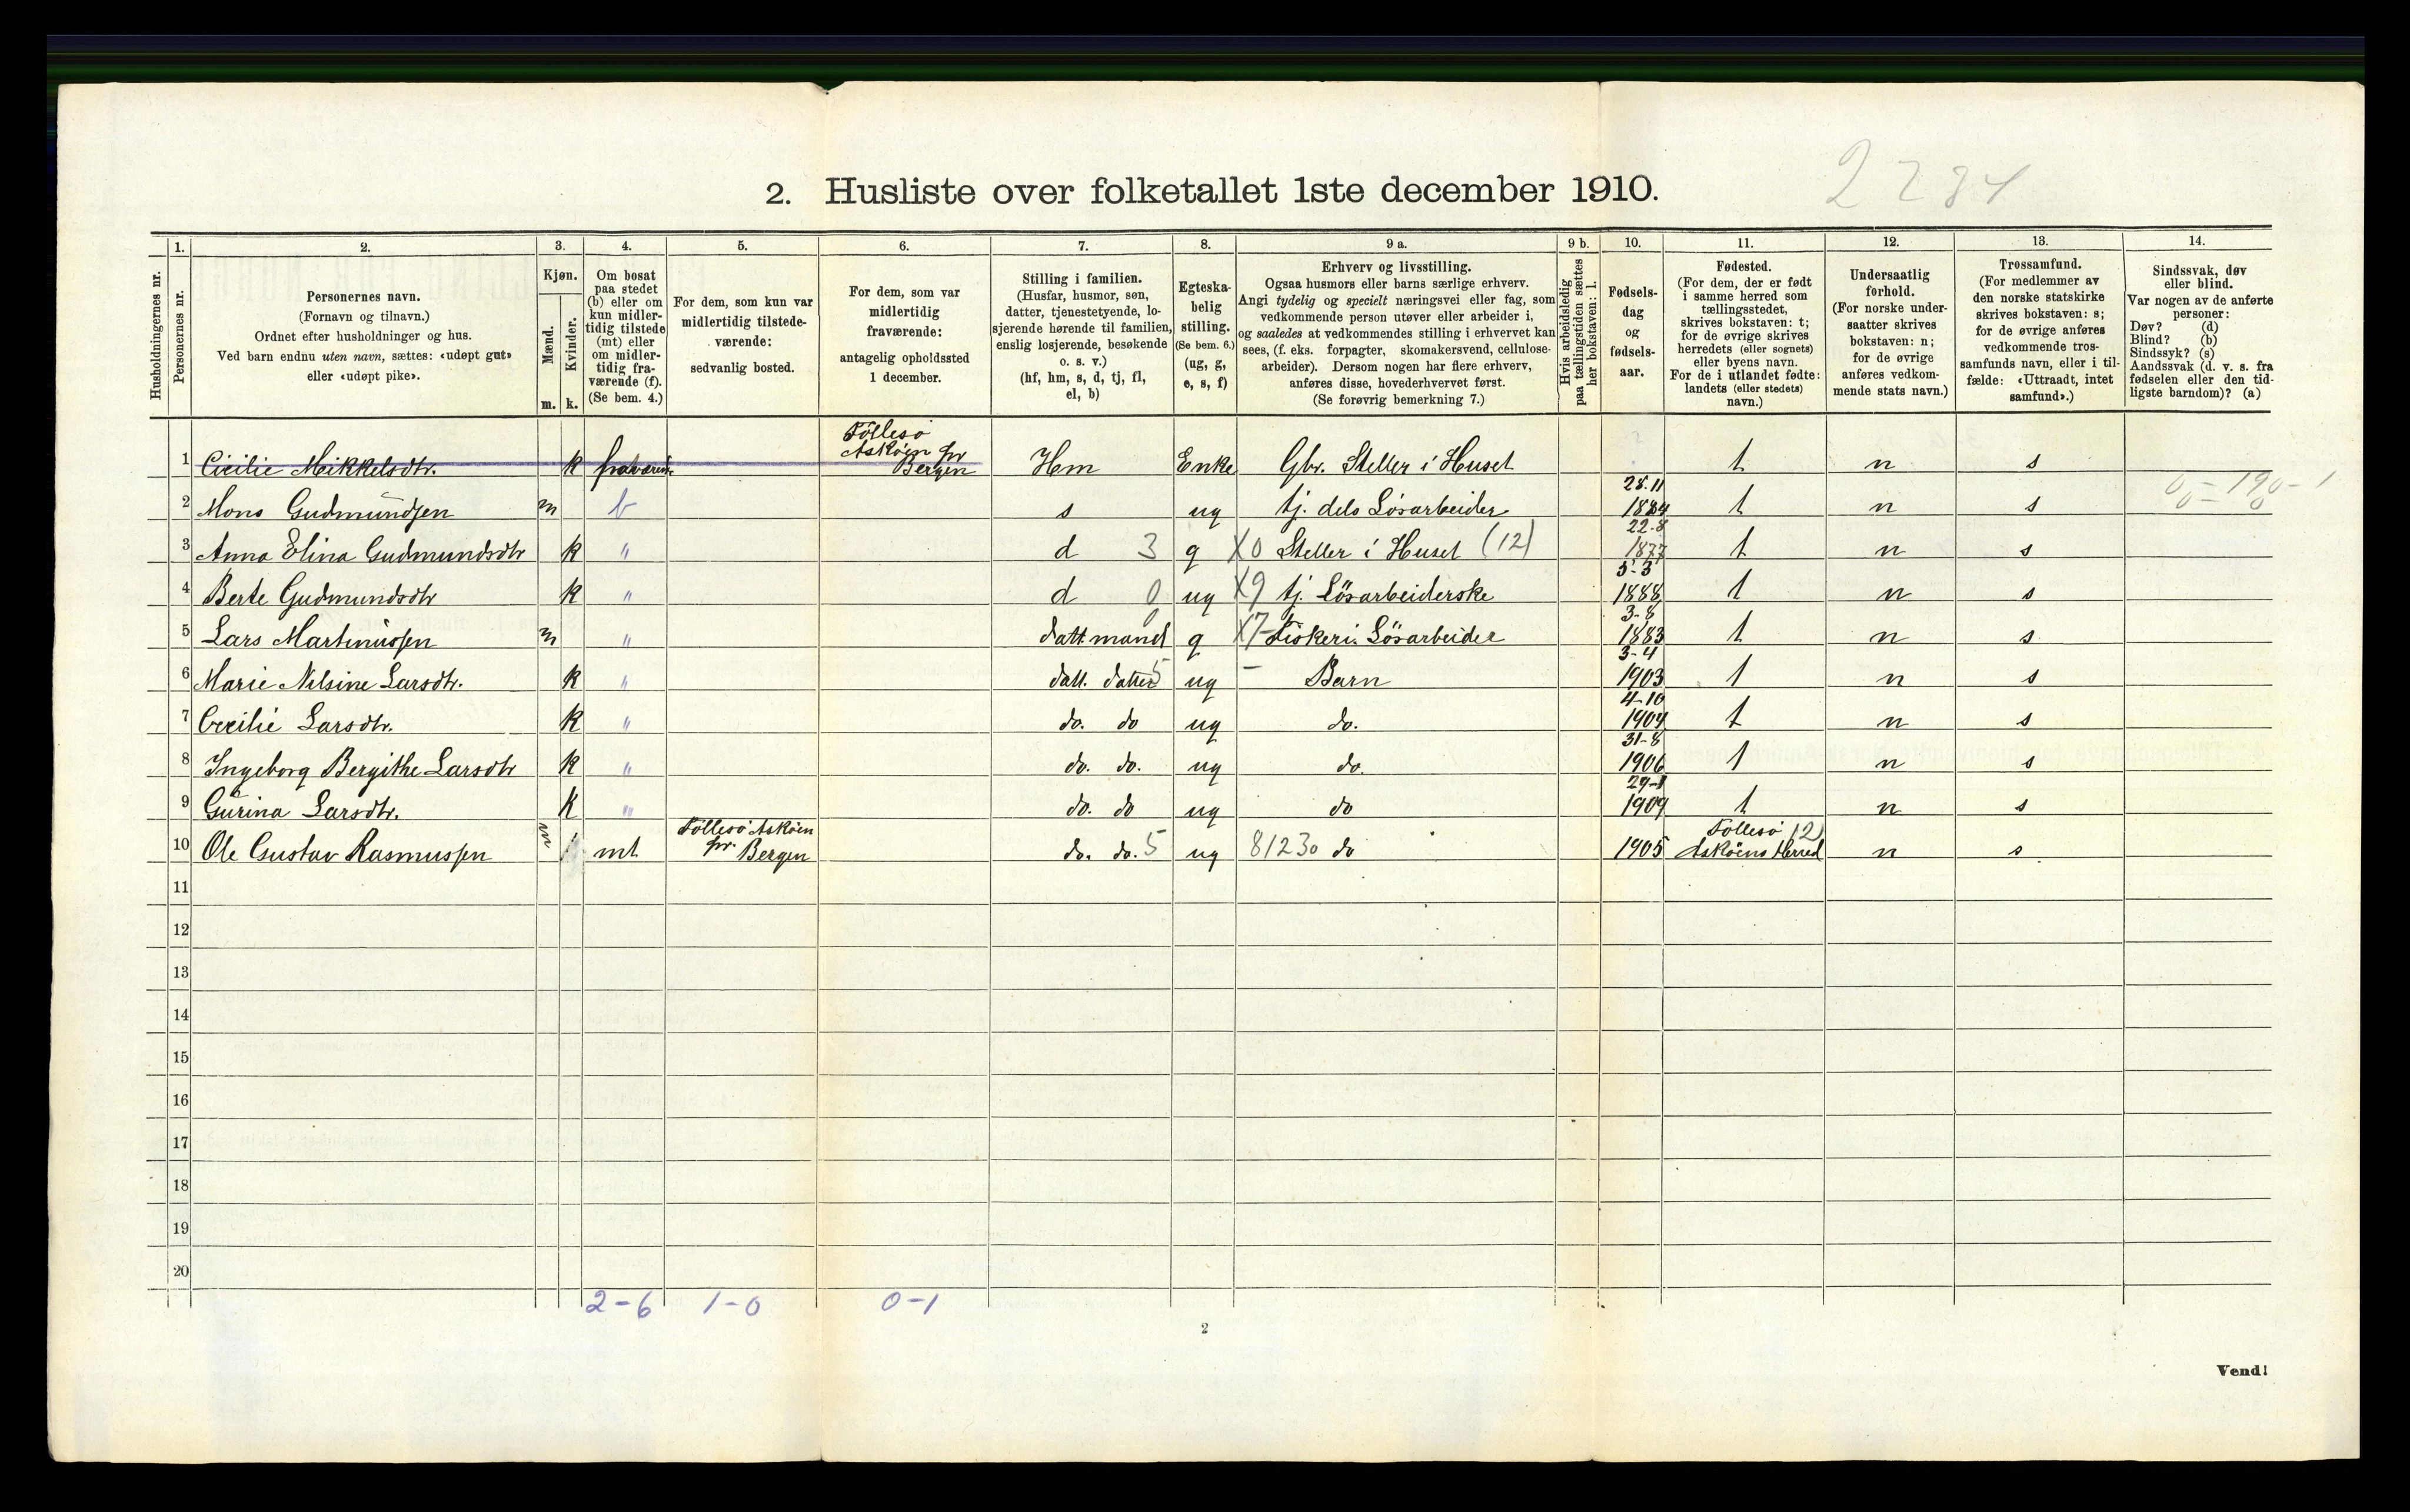 2284
2. Husliste over folketallet 1ste december 1910.
Husholdningernes nr.
1.
Personernes nr.
2.
Personernes navn.
(Fornavn og tilnavn.)
Ordnet efter husholdninger og hus.
Ved barn endnu uten navn, sættes: «udøpt gut»
eller «udøpt pike».
3.
Kjøn.
Mænd.
Kvinder.
m. k.
4.
Om bosat
paa stedet
(b) eller om
kun midler-
tidig tilstede
(mt) eller
om midler-
tidig fra-
værende (f).
(Se bem. 4.)
5.
For dem, som kun var
midlertidig tilstede-
værende:
sedvanlig bosted.
6.
For dem, som var
midlertidig
fraværende:
antagelig opholdssted
1 december.
7.
Stilling i familien.
(Husfar, husmor, søn,
datter, tjenestetyende, lo-
sjerende hørende til familien,
enslig losjerende, besøkende
o. s. v.)
(hf, hm, s, d, tj, fl,
el, b)
8.
Egteska-
belig
stilling.
(Se bem. 6.)
(ug, g,
e, s, f)
9 a.
Erhverv og livsstilling.
Ogsaa husmors eller barns særlige erhverv.
Angi tydelig og specielt næringsvei eller fag, som
vedkommende person utøver eller arbeider i,
og saaledes at vedkommendes stilling i erhvervet kan
sees, (f. eks. forpagter, skomakersvend, cellulose-
arbeider). Dersom nogen har flere erhverv,
anføres disse, hovederhvervet først.
(Se forøvrig bemerkning 7.)
9 b.
Hvis arbeidsledig
paa tællingstiden sættes
her bokstaven: l.
10.
Fødsels-
dag
og
fødsels-
aar.
11.
Fødested.
(For dem, der er født
i samme herred som
tællingsstedet,
skrives bokstaven: t;
for de øvrige skrives
herredets (eller sognets)
eller byens navn.
For de i utlandet fødte:
landets (eller stedets)
navn.)
12.
Undersaatlig
forhold.
(For norske under-
saatter skrives
bokstaven: n;
for de øvrige
anføres vedkom-
mende stats navn.)
13.
Trossamfund.
(For medlemmer av
den norske statskirke
skrives bokstaven: s;
for de øvrige anføres
vedkommende tros-
samfunds navn, eller i til-
fælde: «Uttraadt, intet
samfund».)
14.
Sindssvak, døv
eller blind.
Var nogen av de anførte
personer:
Døv? (d)
Blind? (b)
Sindssyk? (s)
Aandssvak (d. v. s. fra
fødselen eller den tid-
ligste barndom)? (a)
1 Cicilie Mikkelsdtr. k fraværn. Föllesö Askøen pr Bergen Hm Enke Gbr. Steller i Huset t n s
2 Mons Gudmundsen m b s ug tj. dels Lösarbeider 28.11 1884 t n s
3 Anna Elina Gudmundsdtr k " d 3 g X0 Steller i Huset (12) 22-8 1877 t n s
4 Berte Gudmundsdtr k " d 0 ug X9 tj. Lösarbeiderske 5-3 1888 t n s
5 Lars Martinussen m " datt mand g X7 Fiskeri Lösarbeider 3-8 1883 t n s
6 Marie Nilsine Larsdtr. k " datt. datter 5 ug - Barn 3-4 1903 t n s
7 Cecilie Larsdtr. k " do. do ug do. 4-10 1904 t n s
8 Ingeborg Bergithe Larsdtr k " do. do. ug do. 31-8 1906 t n s
9 Gurina Larsdtr. k " do. do ug do 29-1 1909 t n s
10 Ole Gustav Rasmussen m mt Föllesö Askøen pr. Bergen do. do. 5 ug 81230 do 1905 Föllesö (2) Askøens Herred n s
11
12
13
14
15
16
17
18
19
20
2-6 1-0 0-1
2
Vend!